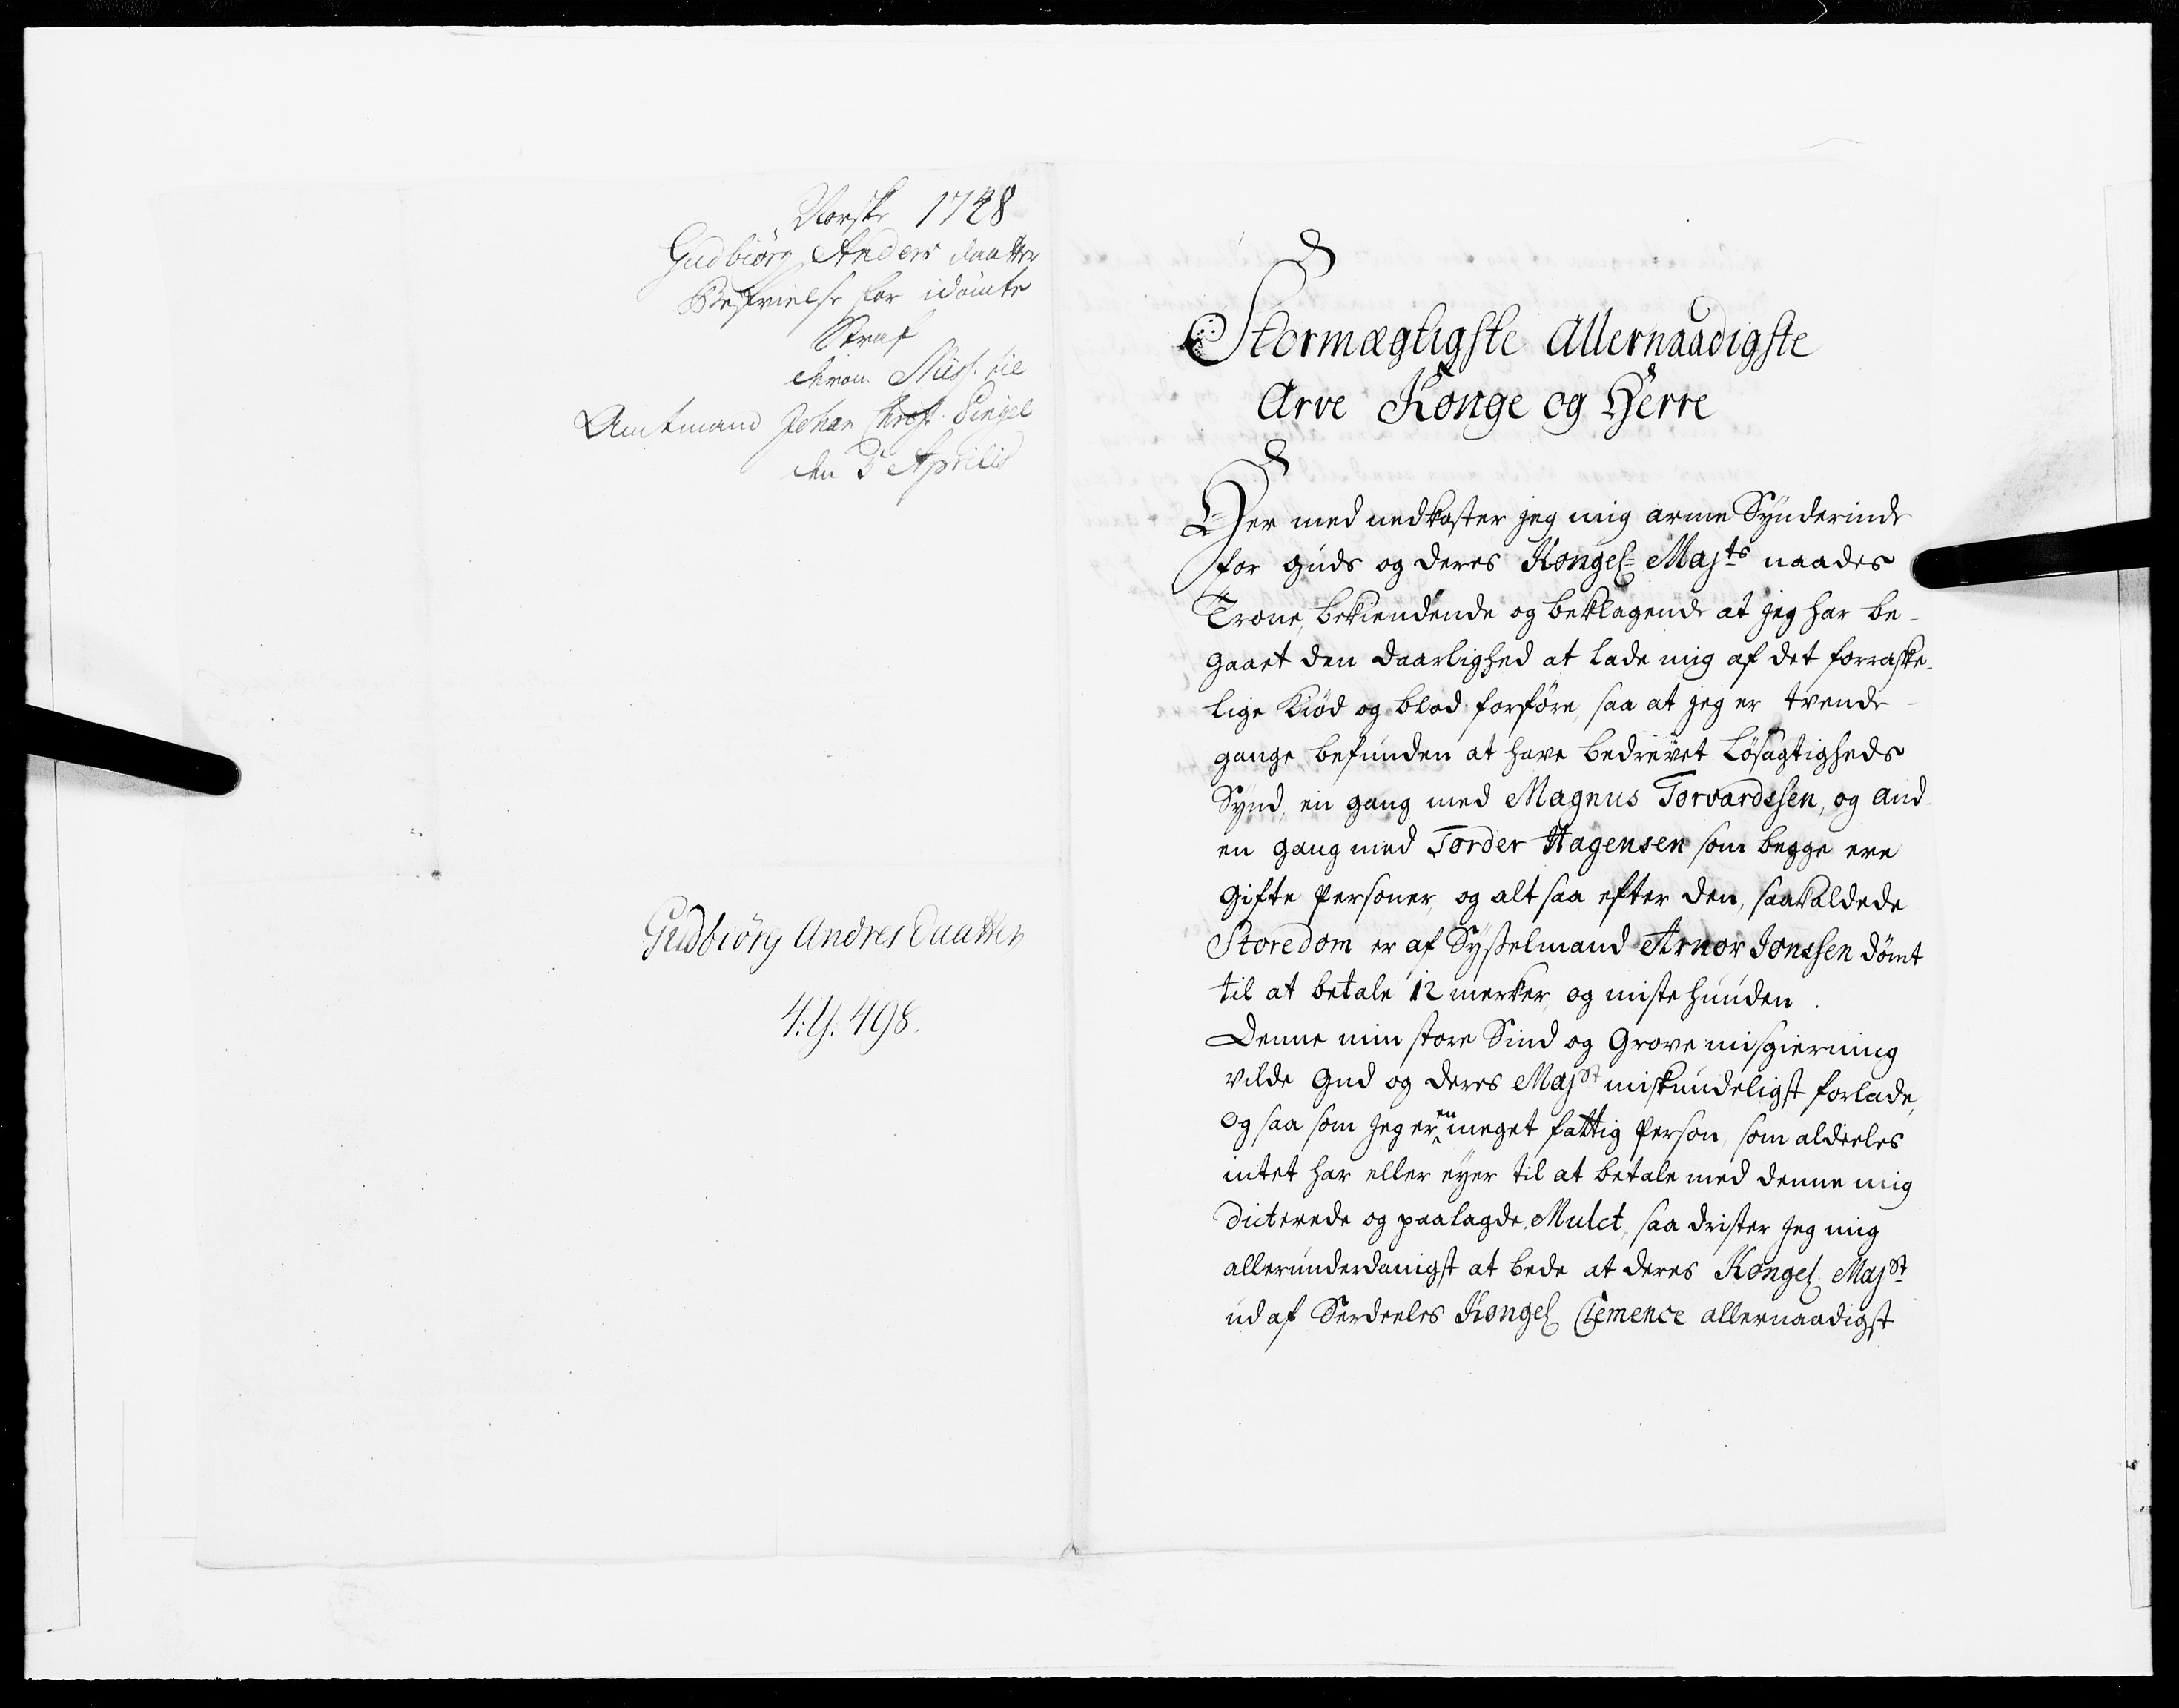 Norske 1748
Gudbiörg Anders daatter
Befrielse for idömte
Straf
Miss. til
Amtmand Johan Christ. Pingel
den 5 Aprilis
Gudbiörg Andres Daatter
4: Y. 498.
Stormægtigste Allernaadigste
Arve Konge og Herre
Her med nedkaster jeg mig arme Synderinde
for Guds og deres Kongel= Majts naades
Trone, bekiendende og beklagende at jeg har be-
gaaet den daarlighed at lade mig af det forraske-
lige Kiød og blod forføre, saa at jeg er trende
gange befunden at have bedrevet Løsagtigheds
Synd, en gang med Magnus Torvardssen, og and-
en gang med Torder Hagensen som begge ere
gifte Personer, og alt saa efter den, saakaldede
Storedom er af Sysselmand Arnor Jonssen dömt
til at betale 12 merker, og miste huuden.
Denne min store Sind og Grove misgierning
vilde Gud og deres Majst miskundeligst forlade,
og saa som Jeg er en meget fattig Person, som aldeeles
intet har eller eyer til at betale med denne mig
dicterede og paalagde Mulct, saa drister Jeg mig
allerunderdanigst at bede at deres Kongel Majst
ud af Serdeeles Kongel Clemence allernaadigst